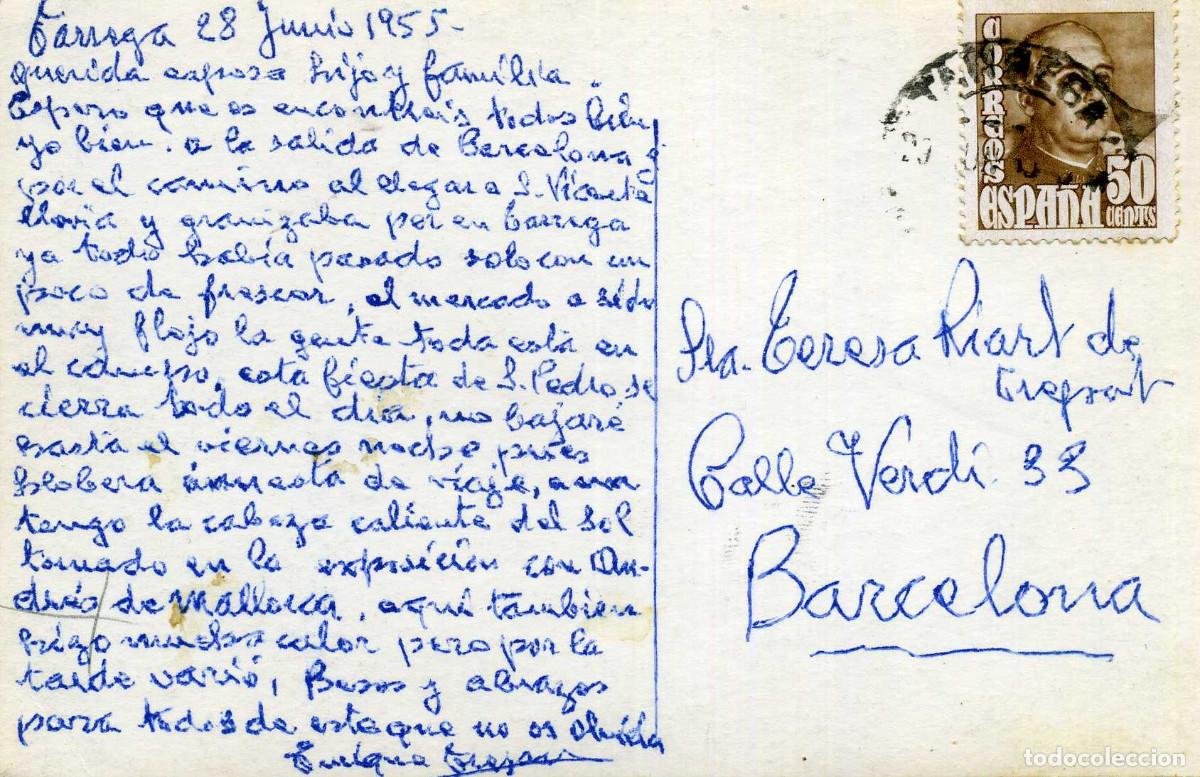 Tárrega 28 Junio 1955-
querida esposa hijo y familia.
Espero que os encontreis todos bien
yo bien. a la salida de Barcelona y
por el camino al llegar a S. Vicente
llovia y granizaba per en Tarrega
ya todo habia pasado solo con un
poco de frescor, el mercado a sido
muy flojo la gente toda está en
el
esta fiesta de S. Pedro se
cierra todo el dia, no bajaré
asta el viernes noche pues
Llobera de viaje, aun
tengo la cabeza caliente del sol
tomado en la exposición con An-
drés de Mallorca, aqui tambien
hizo mucho calor pero por la
tarde varió, Besos y abrazos
para todos de este que no os olvida
Enrique
CORREOS
ESPAÑA 50
CENTS
Sra. Teresa Riart de
Trepat
Calle Verdi 33
Barcelona
todocoleccion